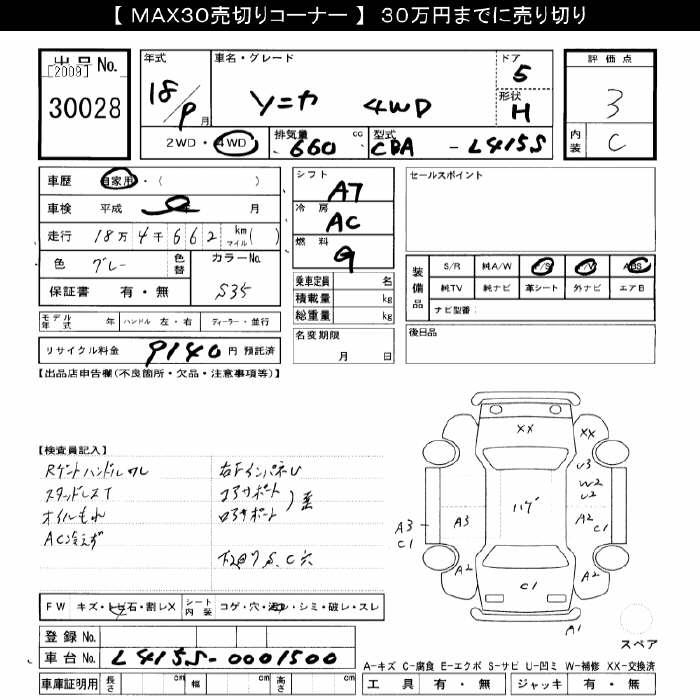 【 MAX30売切りコーナー 】 30万円までに売り切り
出品 No.
[2009]
30028
年式
18/9 月
車名・グレード
ソニカ 4WD
ドア
5
形状
H
2WD・4WD
排気量 cc
660
型式
CBA - L415S
評価点
3
内装
C
車歴 自家用・( )
車検 平成 年 月
走行 18万4千662 km マイル( )
色 グレー 色替 カラーNo.
S35
保証書 有・無
モデル年式 年 ハンドル 左・右 ディーラー・並行
リサイクル料金 9140 円 預託済
シフト
AT
冷房
AC
燃料
G
乗車定員 名
積載量 kg
総重量 kg
名変期限
月 日
セールスポイント
装備品
S/R 純A/W P/S P/W ABS
純TV 純ナビ 革シート 外ナビ エアB
ナビ型番:
後日品
【出品店申告欄(不良箇所・欠品・注意事項等)】
【検査員記入】
Rゲートハンドルワレ
スタッドレスT
オイルもれ
AC冷えず
右FインパネU
コアサポート
ロアサポート
歪
下回りS、C穴
FW キズ・トビ石・割レX シート内装 コゲ・穴・汚レ・シミ・破レ・スレ
登録 No.
車台 No. L415S-0001500
車庫証明用 長さ cm 幅 cm 高さ cm
XX
XX
U3
W2
U2
ハゲ
A3
C1
A3
A2
C1
A2
A2
C1
A1
スペア
A-キズ C-腐食 E-エクボ S-サビ U-凹ミ W-補修 XX-交換済
工具 有・無 ジャッキ 有・無